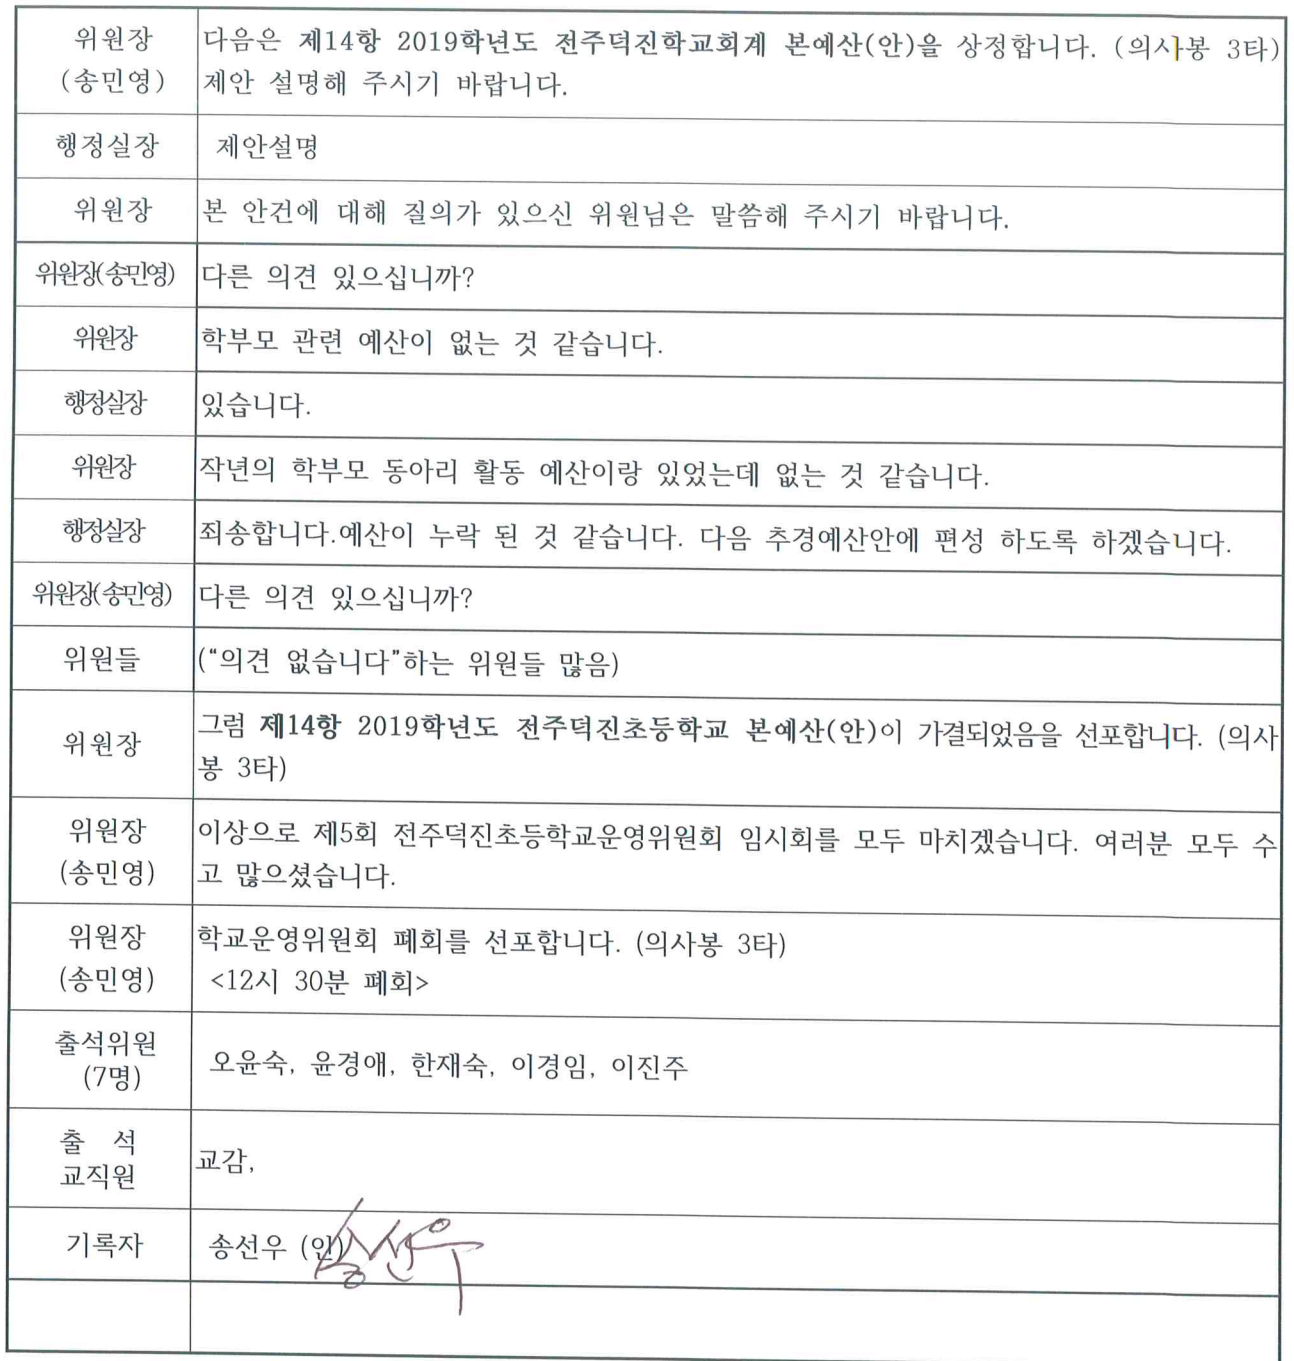 위원장
(송민영)
다음은 제14항 2019학년도 전주덕진학교회계 본예산(안)을 상정합니다. (의사봉 3타)
제안 설명해 주시기 바랍니다.
행정실장
제안설명
위원장
본 안건에 대해 질의가 있으신 위원님은 말씀해 주시기 바랍니다.
위원장(송민영)
다른 의견 있으십니까?
위원장
학부모 관련 예산이 없는 것 같습니다.
행정실장
있습니다.
위원장
작년의 학부모 동아리 활동 예산이랑 있었는데 없는 것 같습니다.
행정실장
죄송합니다.예산이 누락 된 것 같습니다. 다음 추경예산안에 편성 하도록 하겠습니다.
위원장(송민영)
다른 의견 있으십니까?
위원들
(“의견 없습니다”하는 위원들 많음)
위원장
그럼 제14항 2019학년도 전주덕진초등학교 본예산(안)이 가결되었음을 선포합니다. (의사
봉 3타)
위원장
(송민영)
이상으로 제5회 전주덕진초등학교운영위원회 임시회를 모두 마치겠습니다. 여러분 모두 수
고 많으셨습니다.
위원장
(송민영)
학교운영위원회 폐회를 선포합니다. (의사봉 3타)
<12시 30분 폐회>
출석위원
(7명)
오윤숙, 윤경애, 한재숙, 이경임, 이진주
출 석
교직원
교감,
기록자
송선우 (인)
송선우